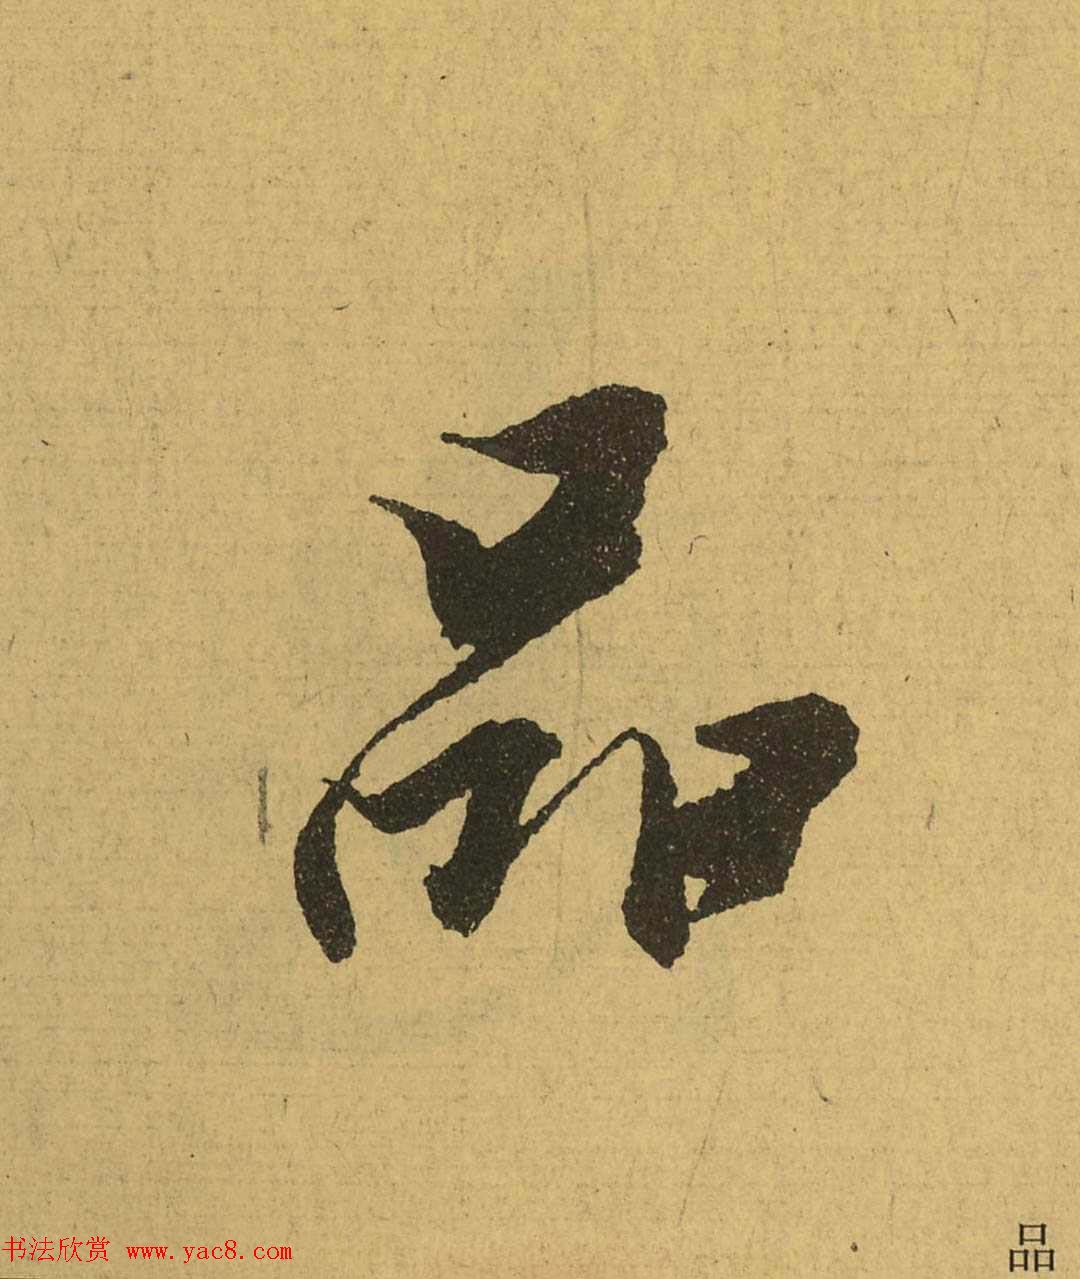 品
品
书法欣赏 www.yac8.com